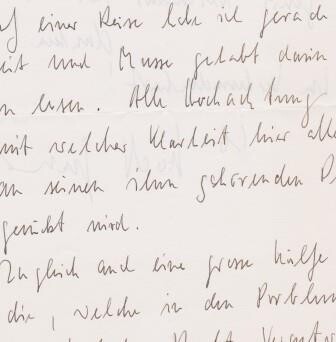 f einer Reise habe ich gerade
eit und Musse gehabt darin
n lesen. Alle Hochachtung
mit welcher Klarheit hier alle
an seinen ihm gehörenden P
gerückt wird.
Zugleich auch eine grosse Hülfe
die, welche in den Problem